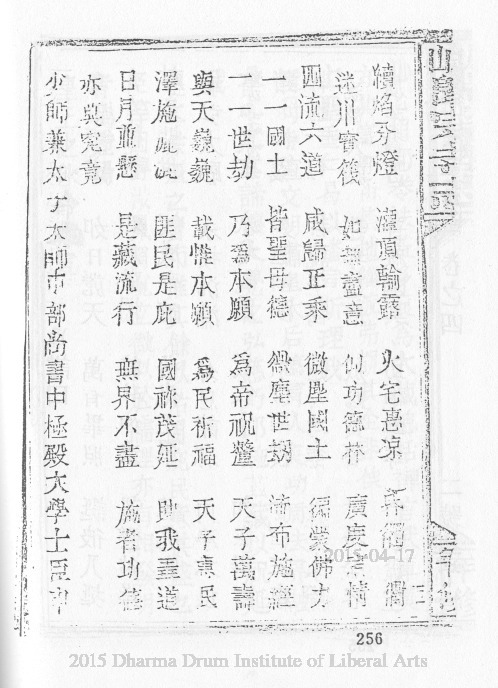 續焰分燈 灌頂輸露 火宅惠凉
迷川寶筏 如無盡意 似功德林 廣度有情
四流六道 咸歸正乘 微塵國土 徧蒙佛力
一一國土 皆聖母德 微塵世劫 流布施經
一一世劫 乃爲本願 為帝祝釐 天子萬壽
與天巍巍 載惟本願 爲民祈福 天子惠民
澤施 匪民是庇 國祚茂延 助我王道
日月並懸 是藏流行 無界不盡 施者功德
亦與究竟
少師兼太子太師中部尚書中極殿大學士臣申
256
2015-04-17
2015 Dharma Drum Institute of Liberal Arts